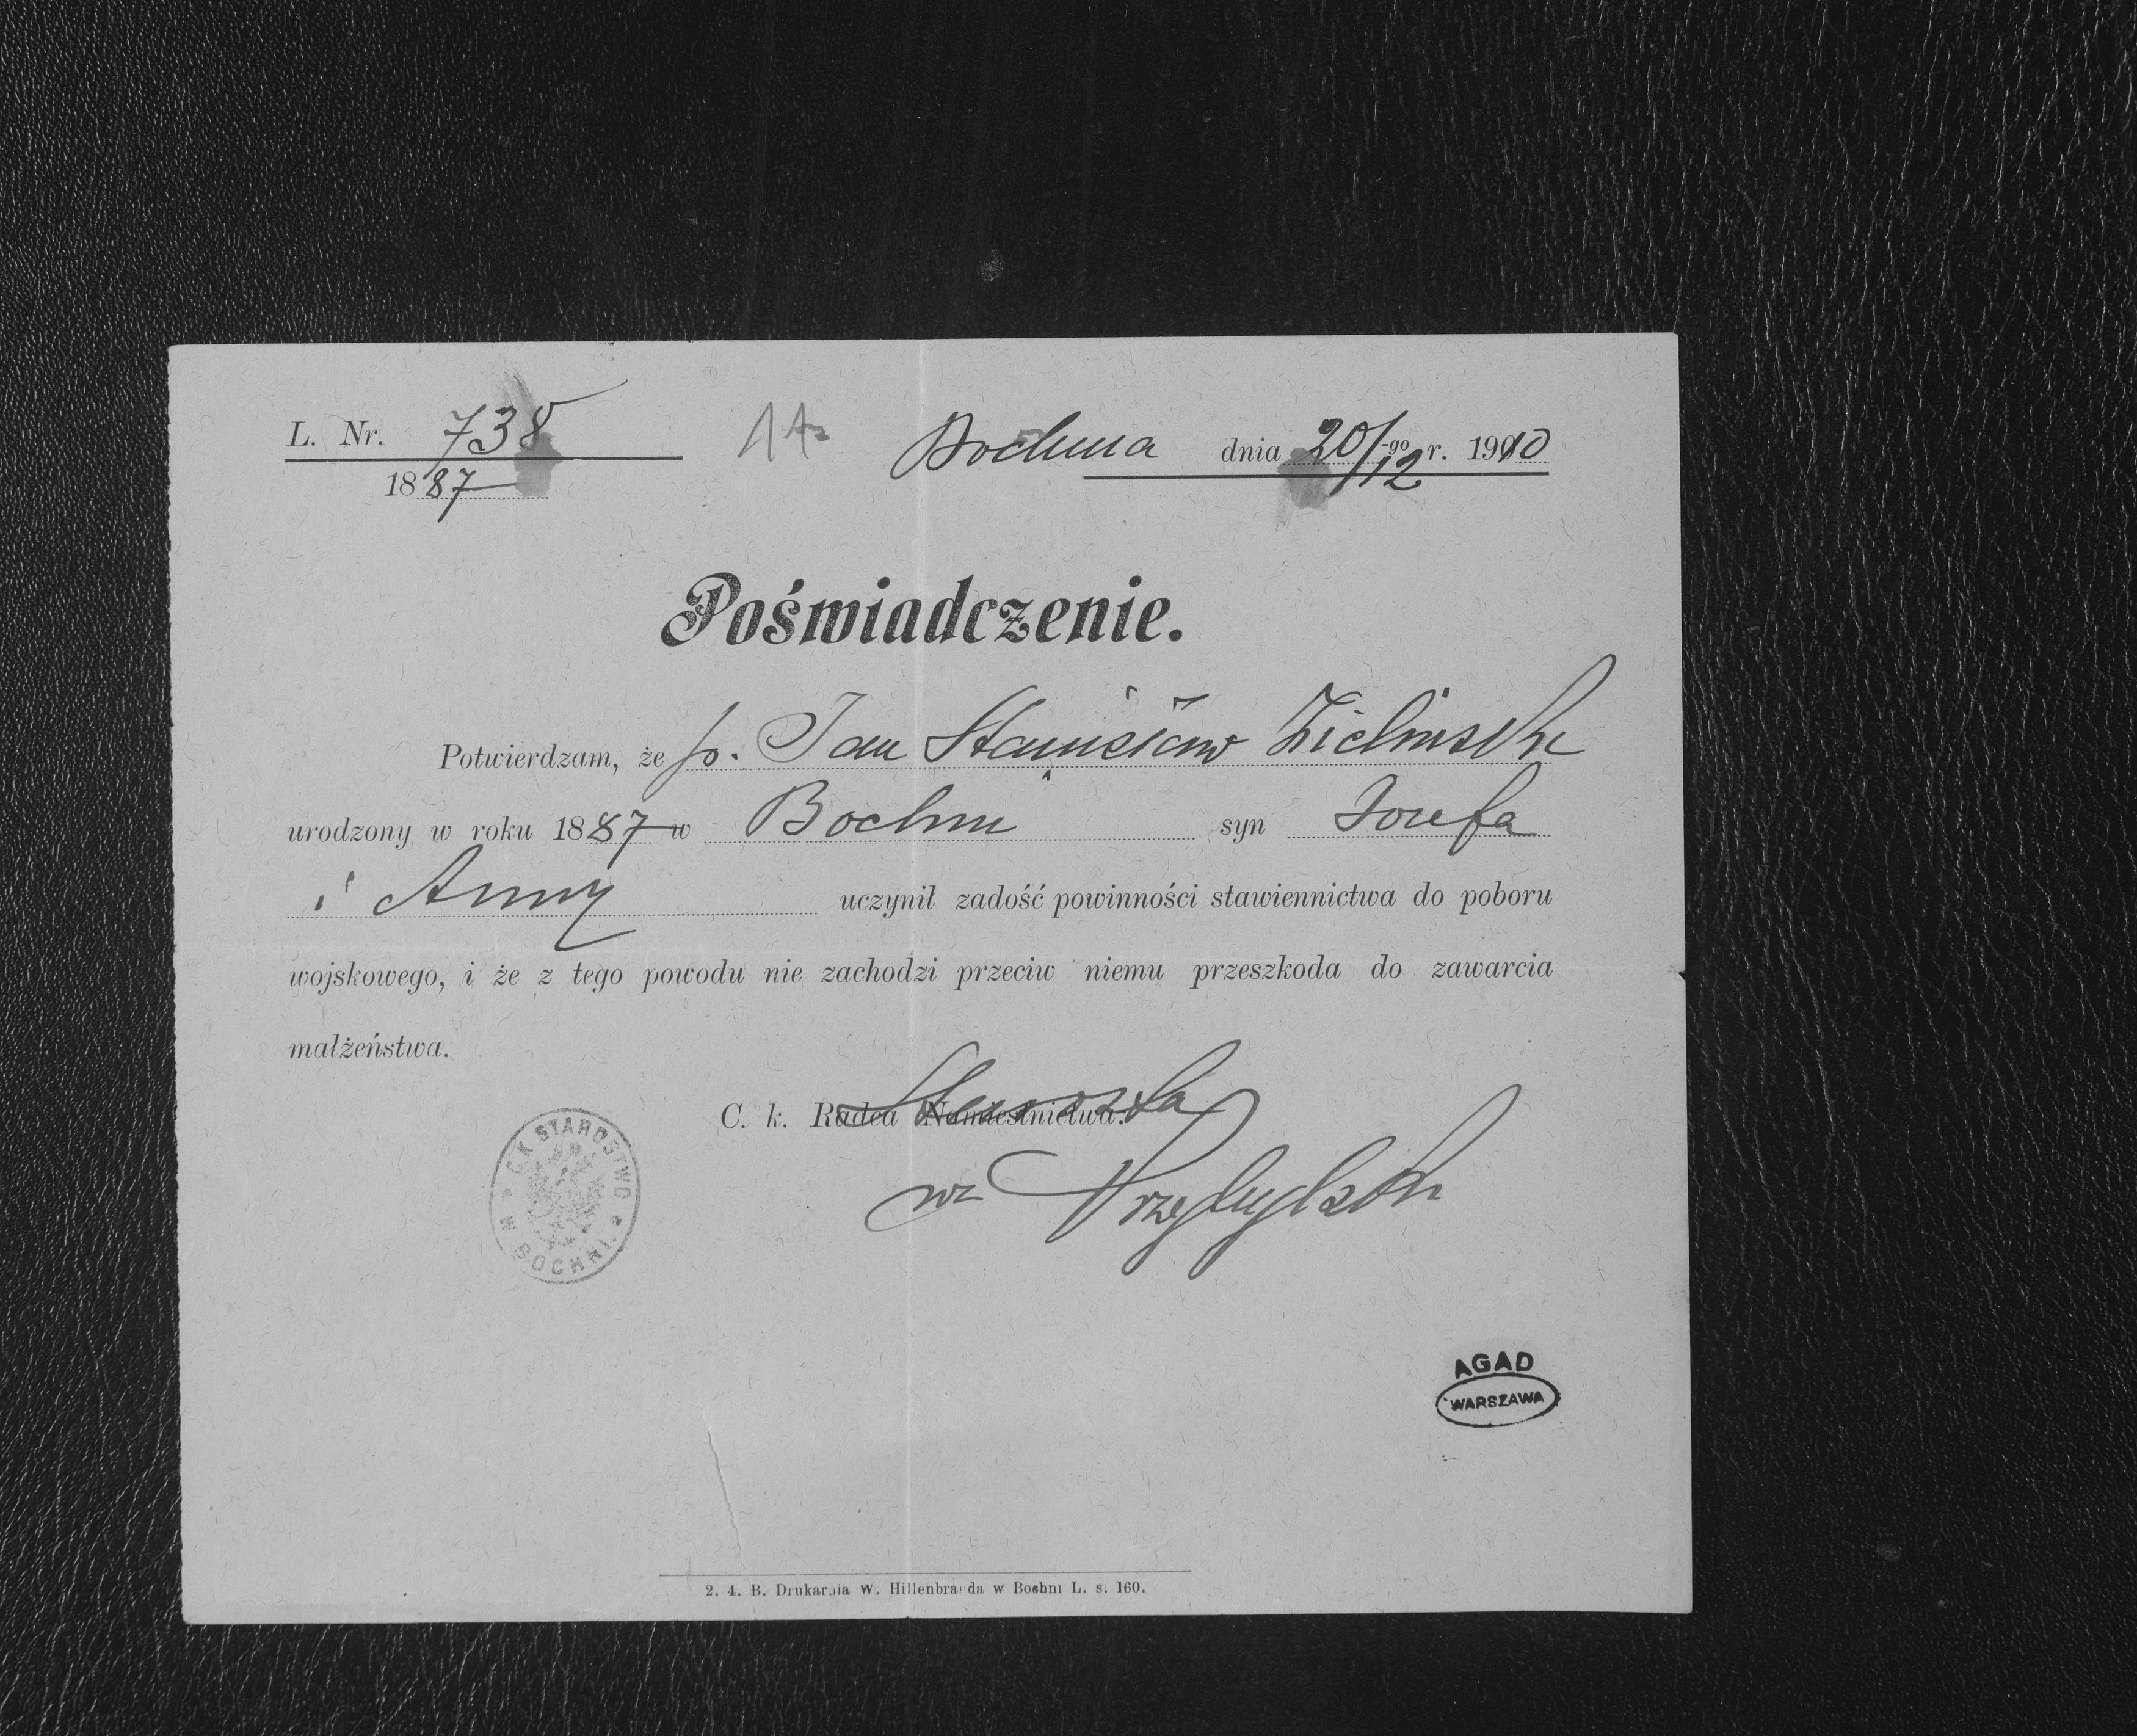 L. Nr. 738 11a Bochnia dnia 20/12 -go r. 1910
1887
Poświadczenie.
Potwierdzam, że p. Jan Stanisław Zieliński
urodzony w roku 1887 w Bochni syn Józefa
i Anny uczynił zadość powinności stawiennictwa do poboru
wojskowego, i że z tego powodu nie zachodzi przeciw niemu przeszkoda do zawarcia
małżeństwa.
C. k. Radca Namiestnictwa. Starosta
wz
C.K. STAROSTWO W BOCHNI.
AGAD
WARSZAWA
2. 4. B. Drukarnia W. Hillenbranda w Bochni L. s. 160.